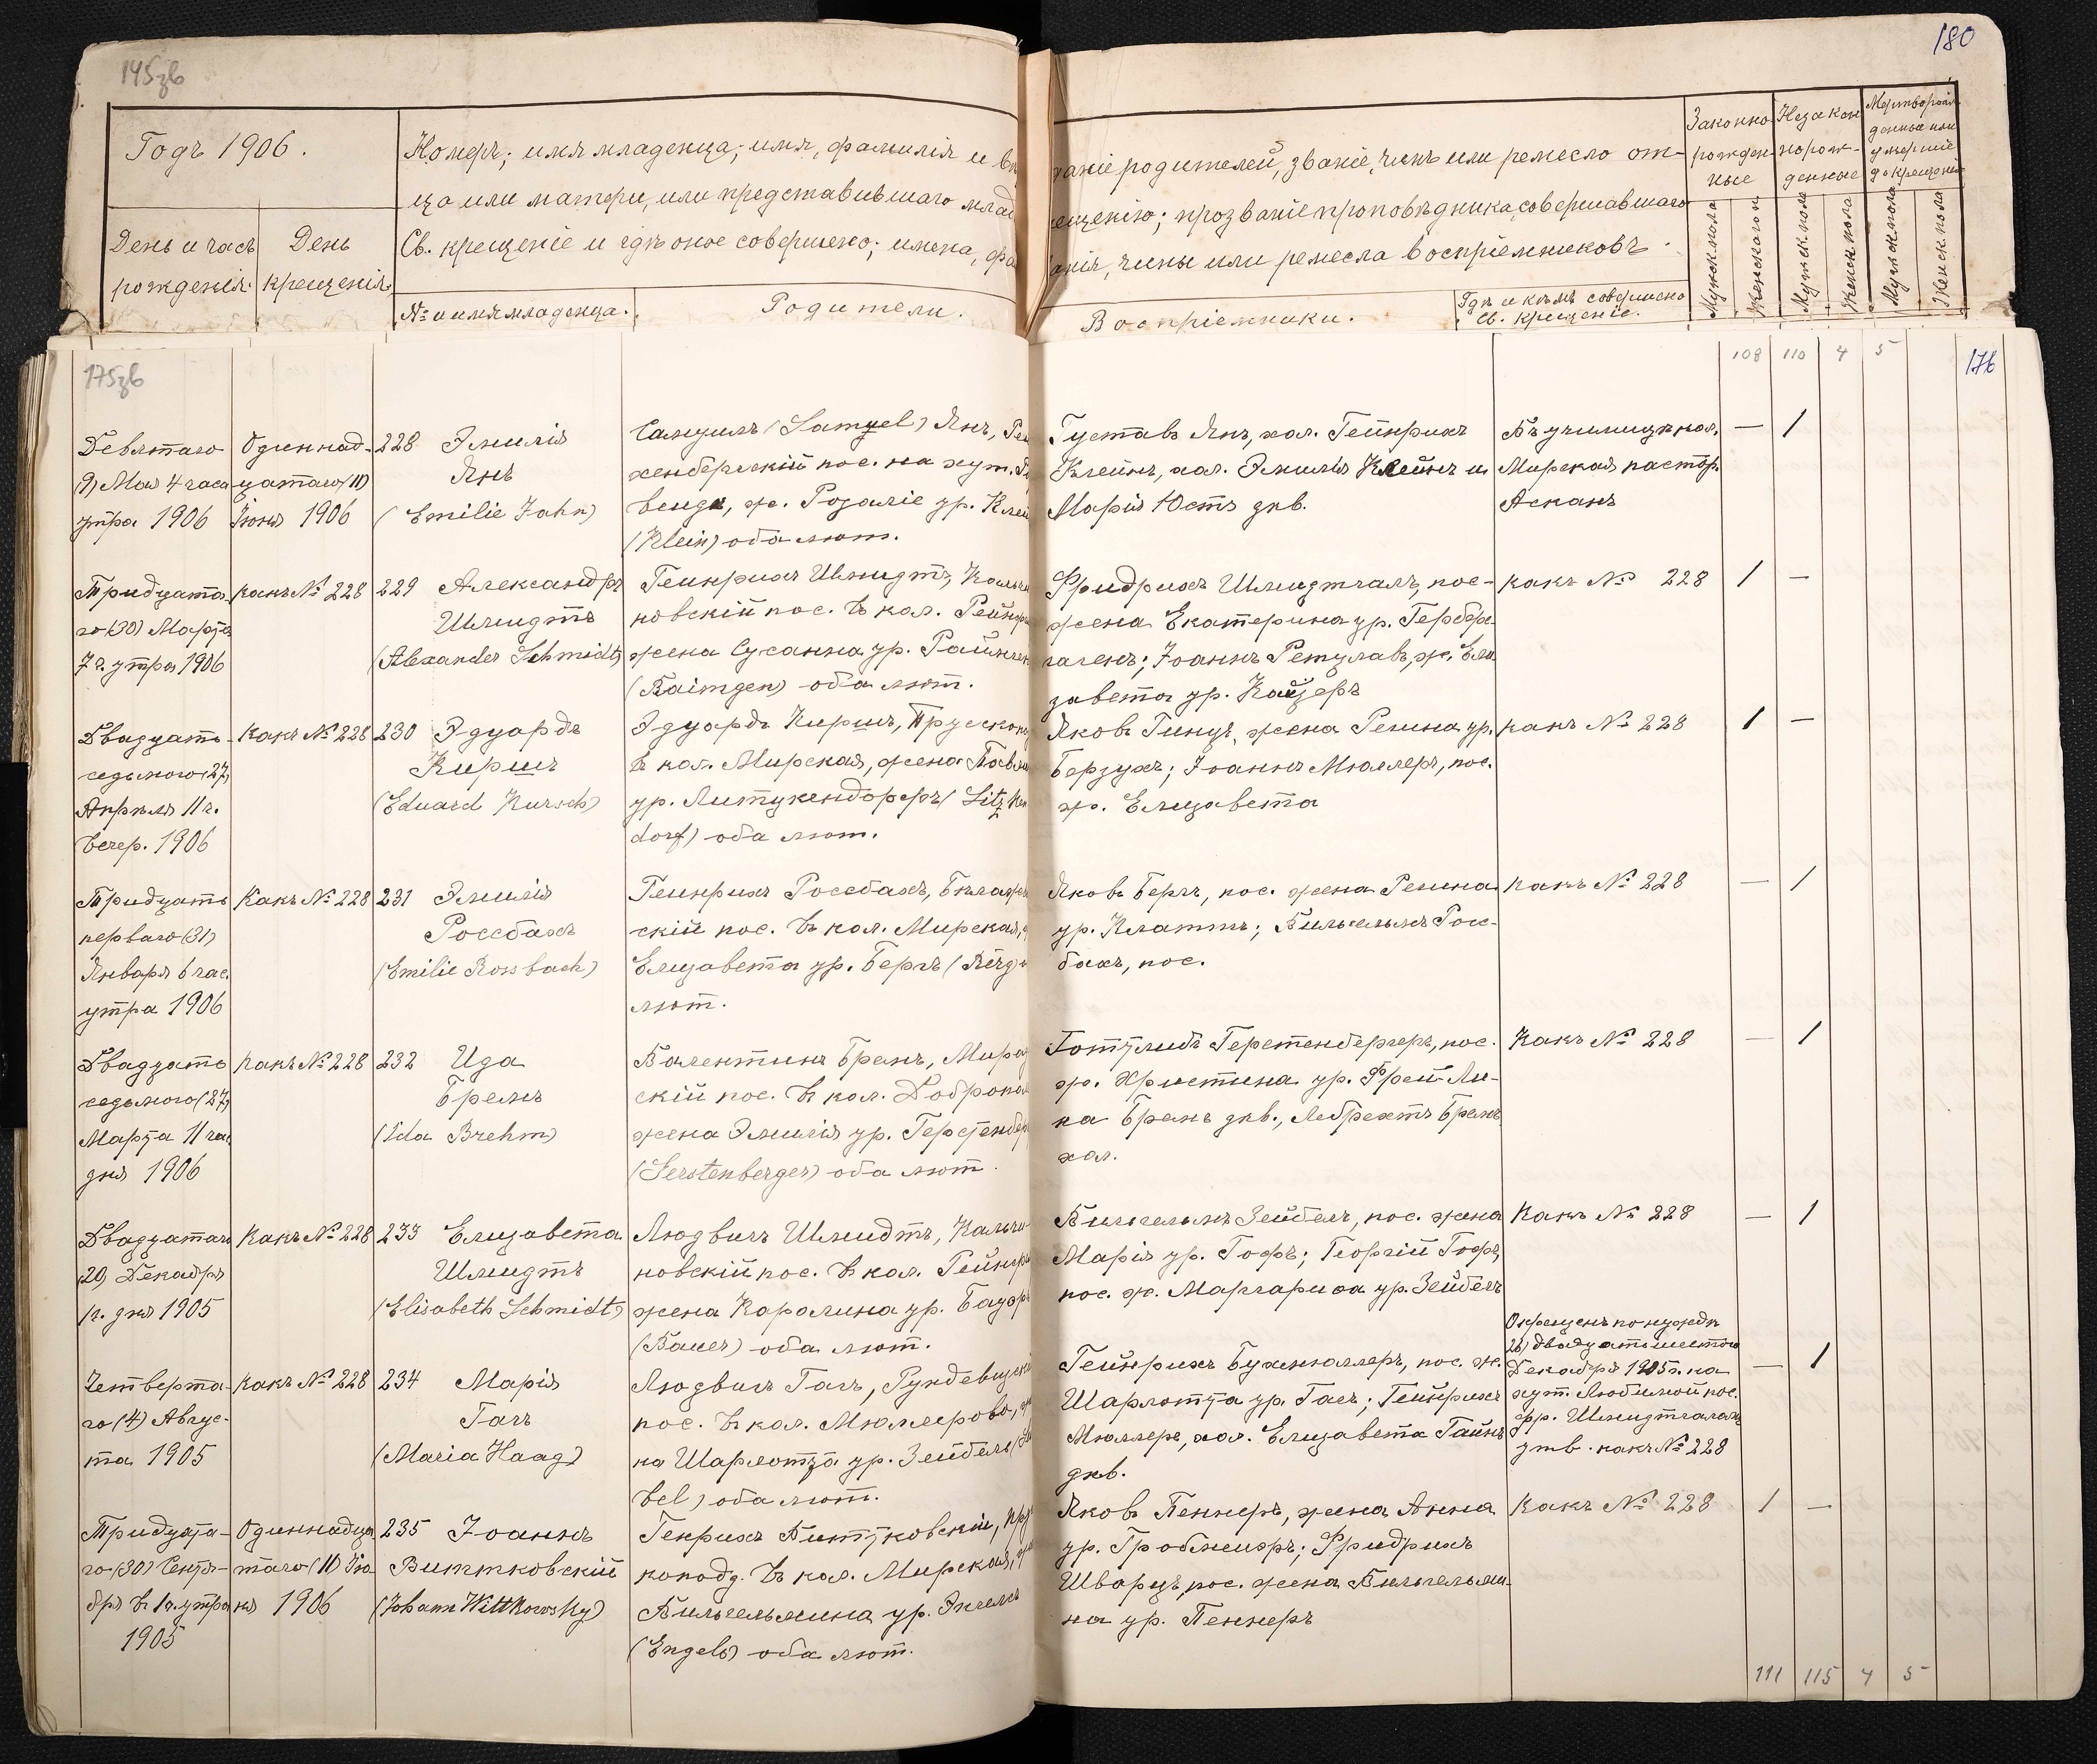 145зв
180
Годъ 1906.
День и часъ
рожденія.
День
крещенія.
Номеръ; имя младенца; имя, фамилія и
ца или матери, или представившаго млад
Св. крещеніе и гдѣ оное совершено; имена,
№ и имя младенца.
Родители.
родителей, званіе, чинъ или ремесло от-
прозваніе проповѣдника, совершавшаго
чины или ремесла воспріемниковъ.
Воспріемники.
Гдѣ и кѣмъ совершено
Св. крещеніе.
Законно
рожден
ные
Незакон
норож-
денные
Мертворож
денные или
умершіе
до крещенія
Мужск. пола
Женскаго п
Мужск. пола
Женск. пола
Мужск. пола
Женск. пола
175зв
108 110 4 5
176
Девятаго
(9) Мая 4 часа
утра 1906
Одиннад-
цатаго (11)
Іюня 1906
228 Эмилія
Янъ
(Emilie Jahn)
Самуилъ (Samuel) Янъ,
хенбергскій пос. на хут.
ж. Розаліе ур. Клей
(Klein) оба лют.
Густавъ Янъ, хол. Гейнрихъ
Клейнъ, хол. Эмилія Клейнъ и
Марія Юстъ дѣв.
Въ училищѣ кол.
Мирская пастор.
Асканъ
— 1
Тридцата-
го (30) Марта
7 ч. утра 1906
какъ № 228
229 Александръ
Шмидтъ
(Alexander Schmidt)
Гейнрихъ Шмидтъ, Кальчи
новскій пос. въ кол. Рейнф
жена Сусанна ур.
оба лют.
Фридрихъ Шмидтгалъ, пос-
жена Екатерина ур. Гербер-
гагенъ; Іоаннъ Ретцлавъ, ж. Ели-
завета ур. Кайзеръ
какъ № 228
1 —
Двадцать-
седьмого (27)
Апрѣля 11 ч.
вечер. 1906
Какъ № 228
230 Эдуардъ
Киршъ
(Eduard Kirsch)
Эдуардъ Киршъ,
въ кол. Мирская, жена
ур. Литцкендорфъ (Litzken
dorf) оба лют.
Яковъ Гинцъ, жена Регина ур.
Берзухъ; Іоаннъ Мюллеръ, пос.
ж. Елизавета
какъ № 228
1 —
Тридцать
перваго (31)
Января 6 час.
утра 1906
Какъ № 228
231 Эмилія
Россбахъ
(Emilie Rossbach)
Гейнрихъ Россбахъ,
скій пос. въ кол. Мирская,
Елизавета ур. Бергъ (Berg)
лют.
Яковъ Бергъ, пос. жена Регина
ур. Платтъ; Вильгельмъ Росс-
бахъ, пос.
какъ № 228
— 1
Двадцать
седьмого (27)
Марта 11 час
дня 1906
какъ № 228
232 Ида
Бремъ
(Ida Brehm)
Валентинъ Бремъ,
скій пос. въ кол. Доброполь
жена Эмилія ур. Герстенбер
(Gerstenberger) оба лют.
Готтлибъ Герстенбергеръ, пос.
ж. Христина ур. Фрей; Ли-
на Бремъ дѣв., Лебрехтъ Бремъ
хол.
Какъ № 228
— 1
Двадцатаго
(20) Декабря
1 ч. дня 1905
Какъ № 228
233 Елизавета
Шмидтъ
(Elisabeth Schmidt)
Людвигъ Шмидтъ, Кальчи-
новскій пос. въ кол. Рейнф
жена Каролина ур. Бауэръ
(Bauer) оба лют.
Вильгельмъ Зейбель, пос. жена
Марія ур. Гофъ; Георгій Гофъ,
пос. ж. Маргарита ур. Зейбель
Какъ № 228
— 1
Четверта-
го (4) Авгус-
та 1905
какъ № 228
234 Марія
Гагъ
(Maria Haag)
Людвигъ Гагъ,
пос. въ кол. Мюллерово,
на Шарлотта ур. Зейбель
bel) оба лют.
Гейнрихъ Бухмюллеръ, пос. ж.
Шарлотта ур. Гагъ; Гейнрихъ
Мюллеръ, хол. Елизавета
дѣв.
Окрещенъ по нуждѣ
26) двадцать шестого
Декабря 1905 г. на
хут. Любимой пос.
Фр. Шмидтгаломъ
утв. какъ № 228
— 1
Тридцата-
го (30) Сентя-
бря въ 1 ч. утра
1905
Одиннадца
таго (11) Ію-
ня 1906
235 Іоаннъ
Виттковскій
(Johann Wittkowsky)
Генрихъ Виттковскій,
коподд. въ кол. Мирская,
Вильгельмина ур. Энгельс
(Engels) оба лют.
Яковъ Пеннеръ, жена Анна
ур. Гробмеиръ; Фридрихъ
Шварцъ, пос. жена Вильгельми-
на ур. Пеннеръ
Какъ № 228
1 —
111 115 4 5